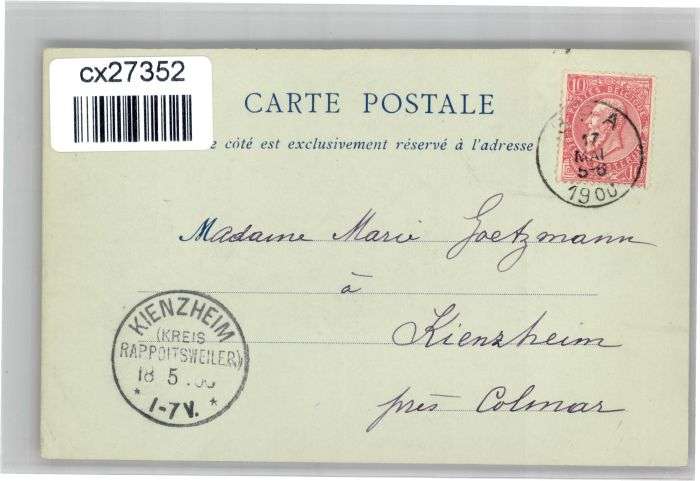 cx27352
CARTE POSTALE
côté est exclusivement réservé à l'adresse
10
17
MAI
5-6
1900
Madame Marie Goetzmann
à
Kienzheim
près Colmar
KIENZHEIM
(KREIS
RAPPOLTSWEILER)
18 5
* 1-7V. *